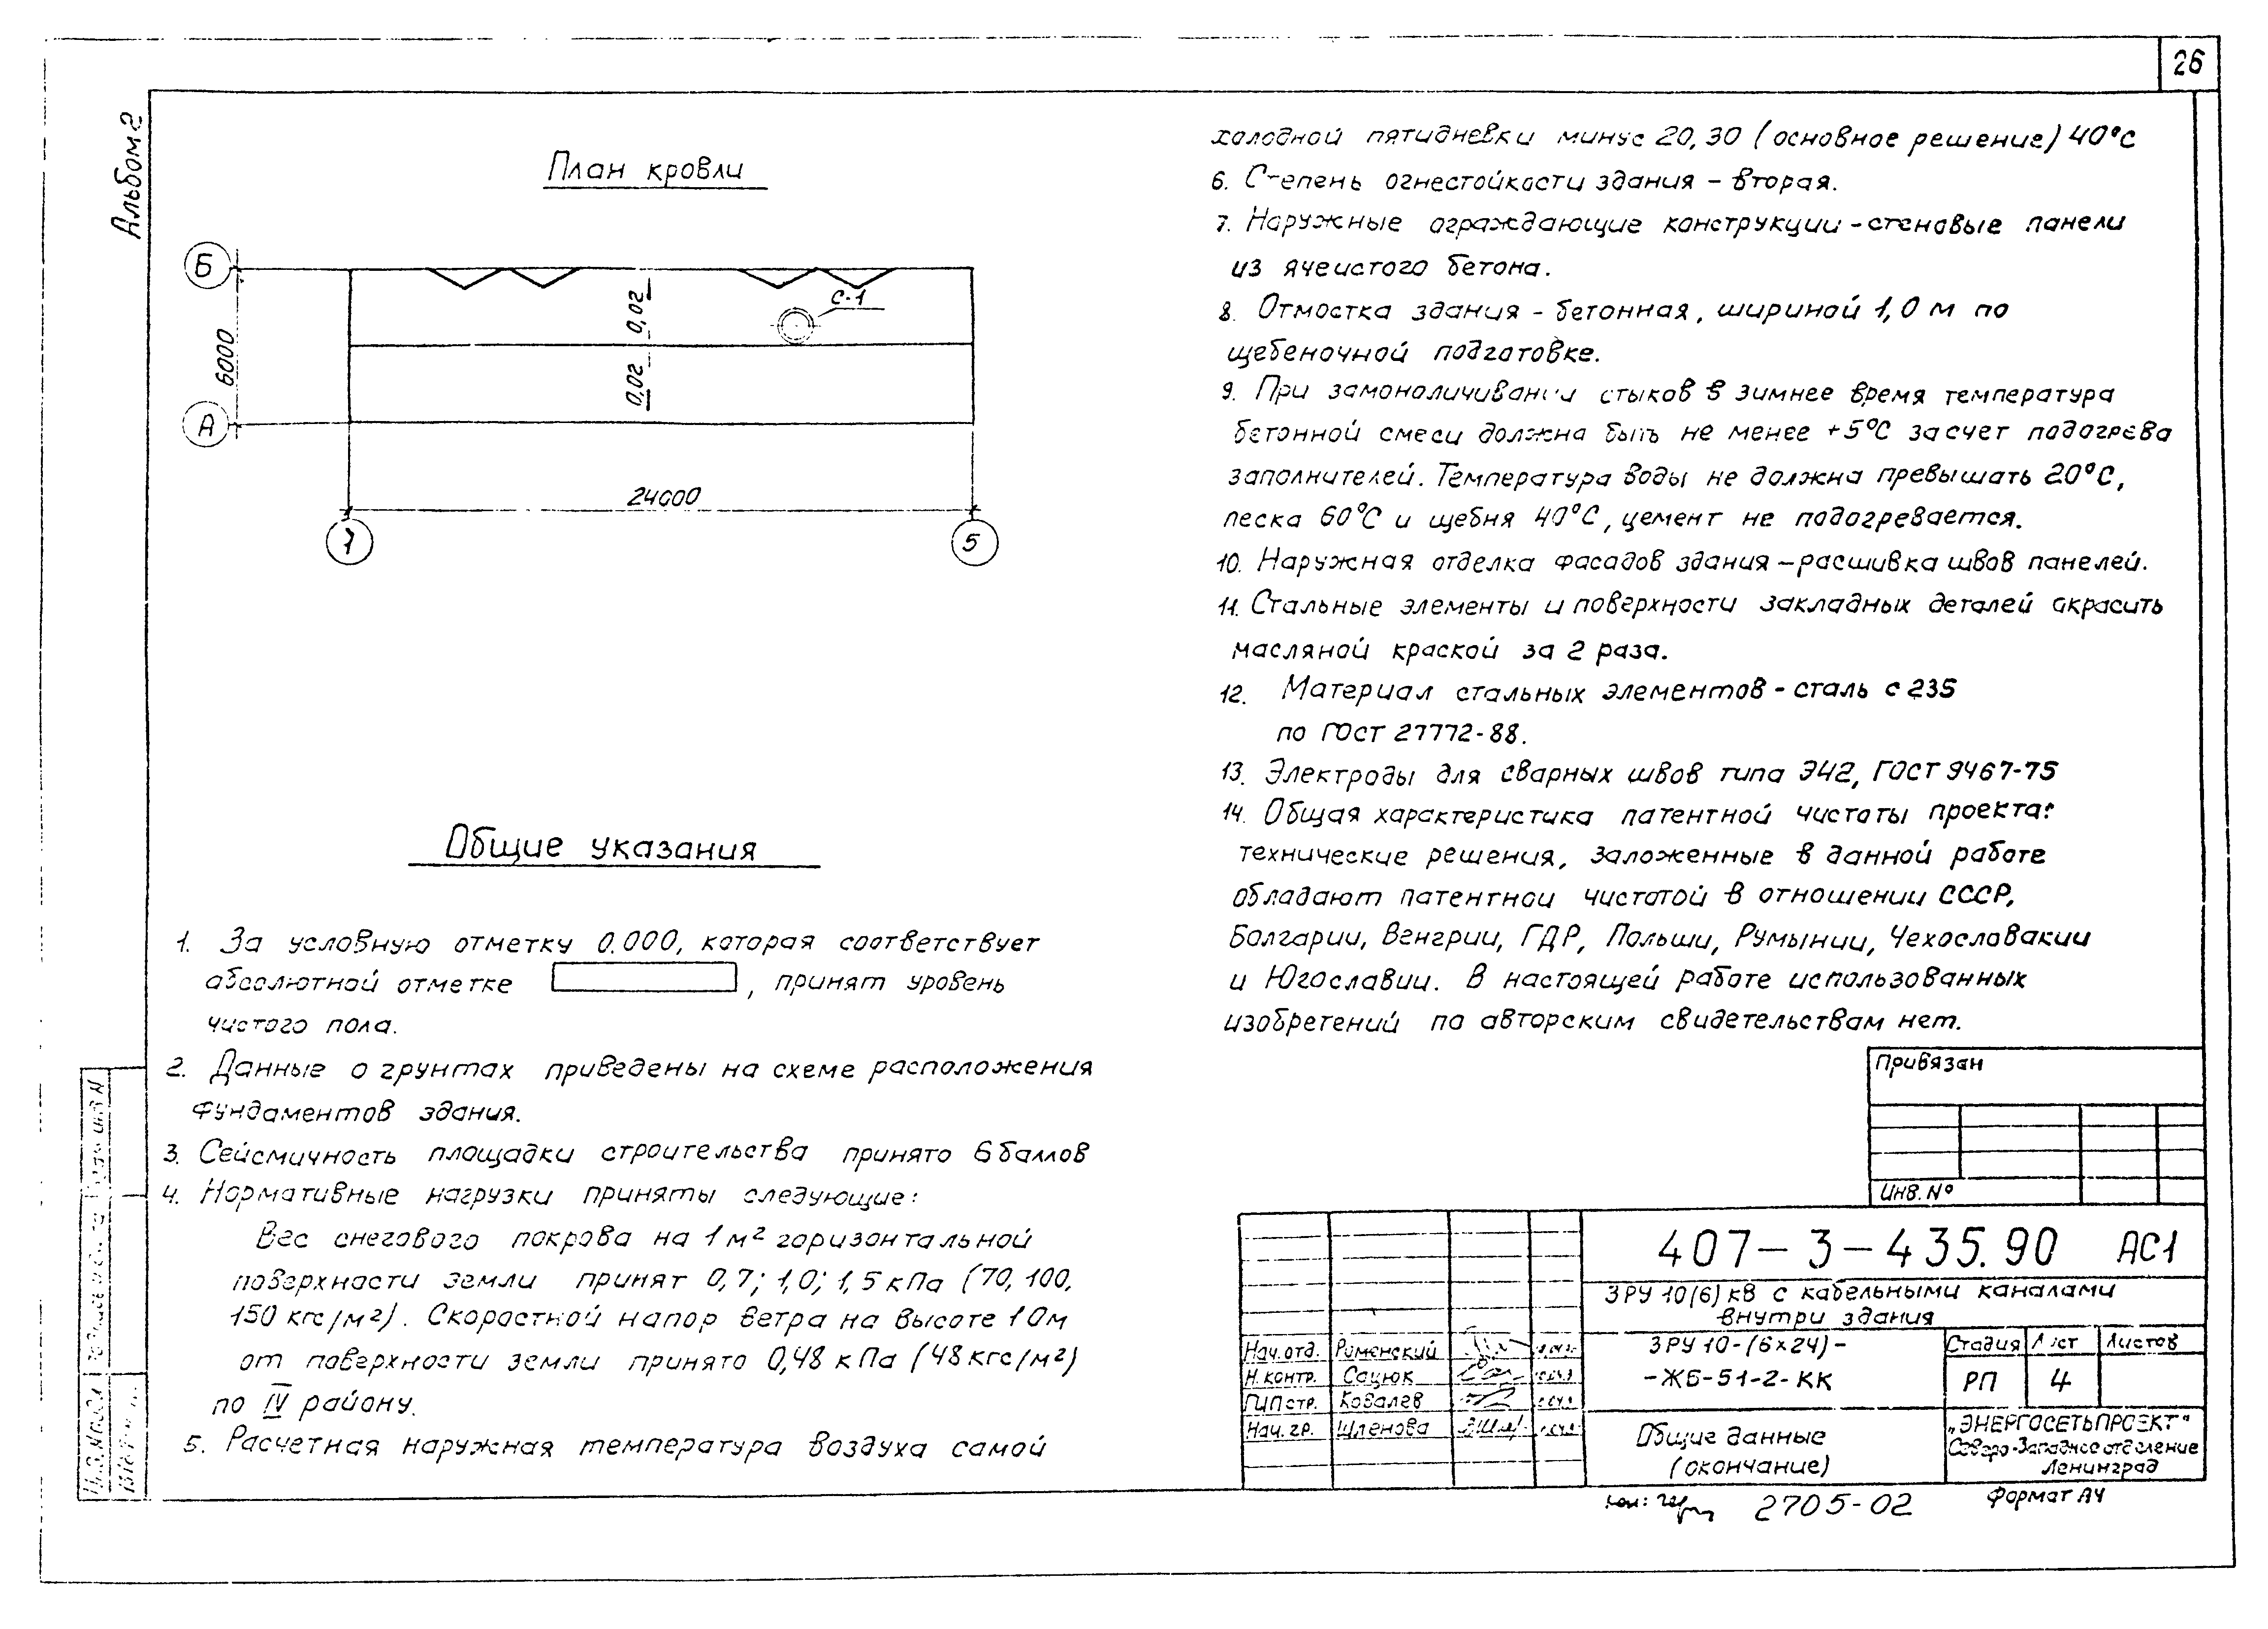 26
Альбом 2
План кровли
Б
А
6000
0,02
0,02
С-1
24000
1
5
Общие указания
1. За условную отметку 0.000, которая соответствует
абсолютной отметке , принят уровень
чистого пола.
2. Данные о грунтах приведены на схеме расположения
фундаментов здания.
3. Сейсмичность площадки строительства принято 6 баллов
4. Нормативные нагрузки приняты следующие:
Вес снегового покрова на 1 м² горизонтальной
поверхности земли принят 0,7; 1,0; 1,5 кПа (70, 100,
150 кгс/м²). Скоростной напор ветра на высоте 10м
от поверхности земли принято 0,48 кПа (48 кгс/м²)
по IV району.
5. Расчетная наружная температура воздуха самой
холодной пятидневки минус 20, 30 (основное решение) 40°С
6. Степень огнестойкости здания – вторая.
7. Наружные ограждающие конструкции – стеновые панели
из ячеистого бетона.
8. Отмостка здания – бетонная, шириной 1,0 м по
щебеночной подготовке.
9. При замоноличивании стыков в зимнее время температура
бетонной смеси должна быть не менее +5°С за счет подогрева
заполнителей. Температура воды не должна превышать 20°С,
песка 60°С и щебня 40°С, цемент не подогревается.
10. Наружная отделка фасадов здания – расшивка швов панелей.
11. Стальные элементы и поверхности закладных деталей окрасить
масляной краской за 2 раза.
12. Материал стальных элементов - сталь с 235
по ГОСТ 27772-88.
13. Электроды для сварных швов типа Э42, ГОСТ 9467-75
14. Общая характеристика патентной чистоты проекта:
технические решения, заложенные в данной работе
обладают патентной чистотой в отношении СССР,
Болгарии, Венгрии, ГДР, Польши, Румынии, Чехословакии
и Югославии. В настоящей работе использованных
изобретений по авторским свидетельствам нет.
Привязан
Инв. №
407-3-435.90 АС1
ЗРУ 10(6) кВ с кабельными каналами
внутри здания
Нач. отд. Роменский
Н. контр. Сацюк
ГИП стр. Ковалев
Нач. гр. Шленова
ЗРУ 10-(6х24)-
-ЖБ-51-2-КК
Стадия Лист Листов
РП 4
Общие данные
(окончание)
„ЭНЕРГОСЕТЬПРОЕКТ"
Северо-Западное отделение
Ленинград
2705-02
Формат А4